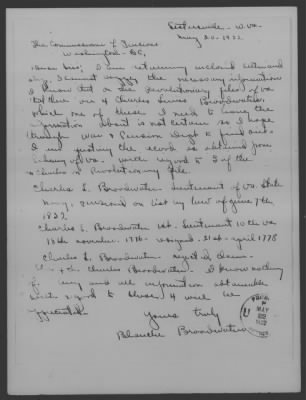 Sistersville - W. Va.
May 20 - 1932
The Commissioner of Pensions
Washington - D.C.
Dear Sirs; I am returning inclosed letter and
I cannot the necessary information
I know that in the Revolutionary files of Va
that there are 4 Charles Broadwater
which one of these I need to have the
information about is not certain so I hope
through War & Pension Dept to find out.
I am quoting the record as obtained from
Library of Va. with regard to 3 of the
Charles in Revolutionary file.
Charles L. Broadwater Lieutenant of Va State
Navy. pensioned on list by law of June 7th
1832
Charles L. Broadwater 1st. Lieutenant 10th Va
18th November. 1776 - resigned. 21st - April 1778
Charles L. Broadwater rejected claim.
The 4th Charles Broadwater. I know nothing
of. any and all information obtainable
with regard to these 4 will be
appreciated
Yours truly
Blanche Broadwater
MAY
1932